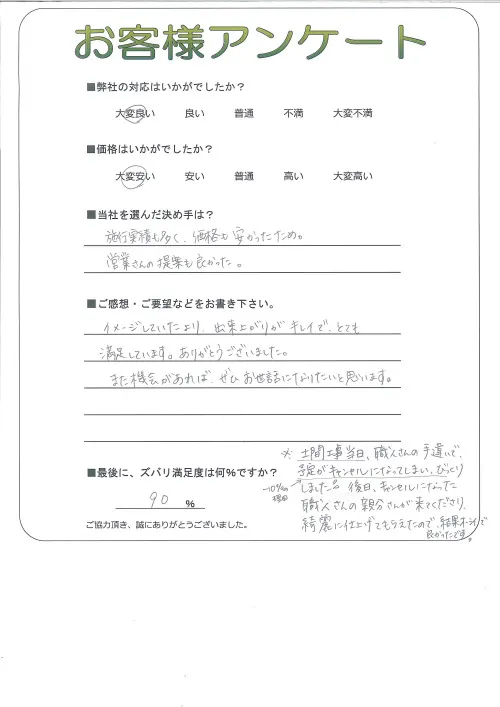 お客様アンケート
■弊社の対応はいかがでしたか？
大変良い 良い 普通 不満 大変不満
■価格はいかがでしたか？
大変安い 安い 普通 高い 大変高い
■当社を選んだ決め手は？
施行実績も多く、価格も安かったため。
営業さんの提案も良かった。
■ご感想・ご要望などをお書き下さい。
イメージしていたより、出来上がりがキレイで、とても
満足しています。ありがとうございました。
また機会があれば、ぜひお世話になりたいと思います。
■最後に、ズバリ満足度は何％ですか？
90 ％
ご協力頂き、誠にありがとうございました。
※ 土間工事当日、職人さんの手違いで、
予定がキャンセルになってしまい、びっくり
しました。後日、キャンセルになった
職人さんの親分さんが来てくださり、
綺麗に仕上げてもらえたので、結果オーライで
良かったです。
-10%の
理由